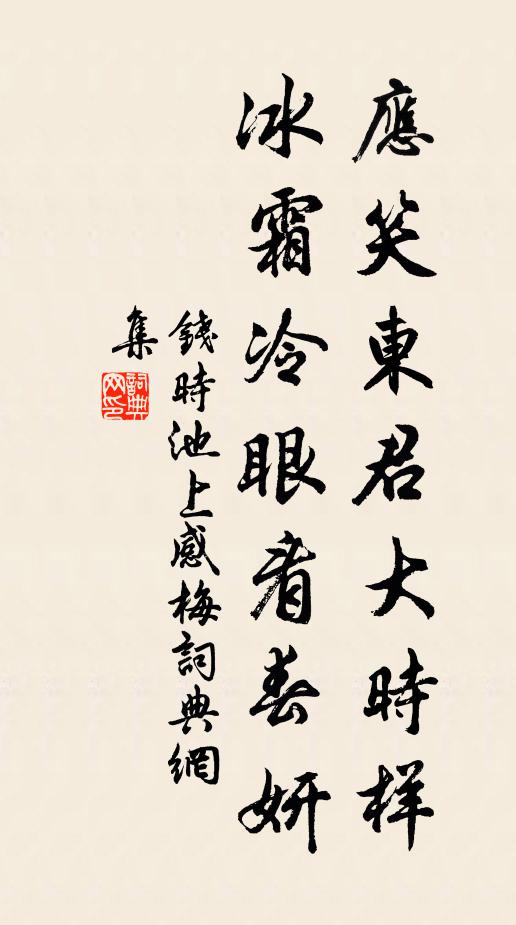 應笑東君大時樣
冰霜冷眼看春妍
錢時池上感梅詞典網
集
詞典
网印